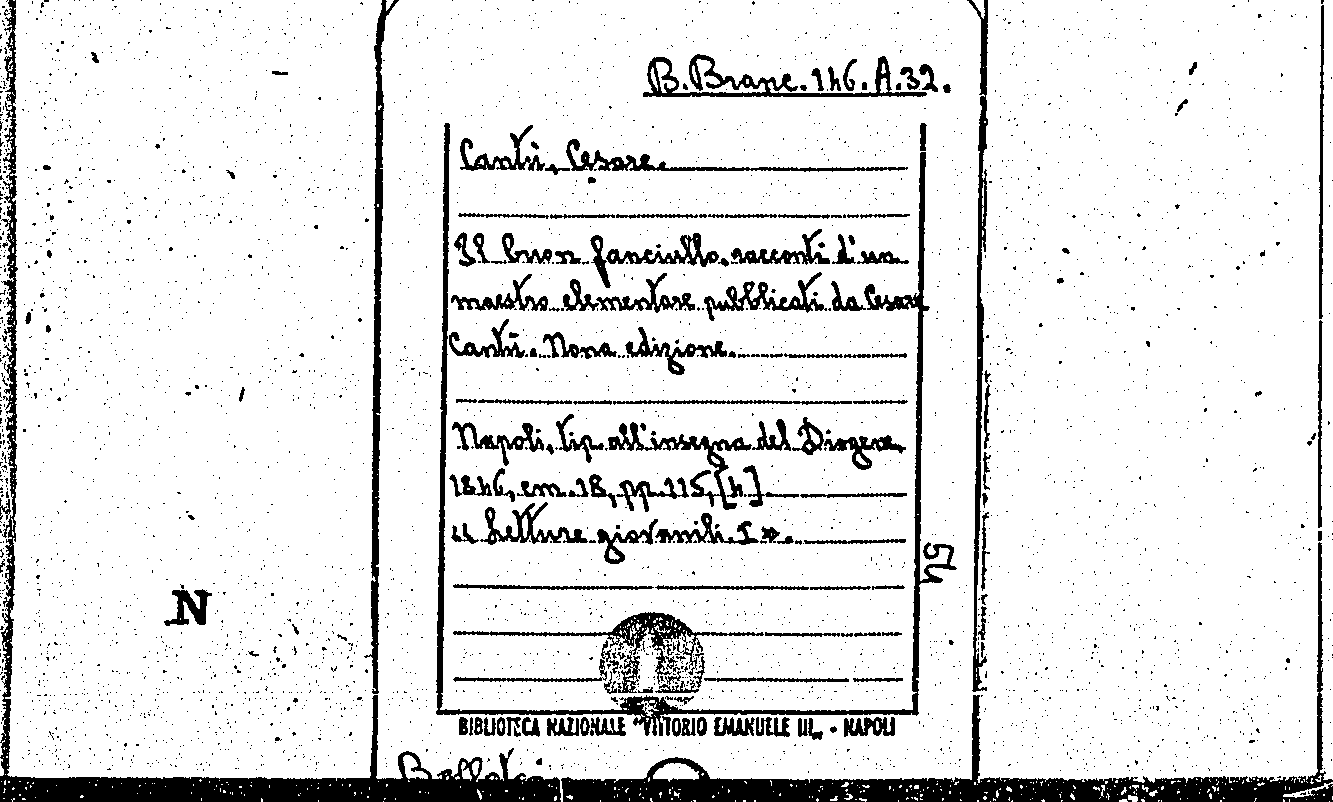 B. Branc. 146. A. 32.
Cantù, Cesare.
Il buon fanciullo, racconti d'un
maestro elementare pubblicati da Cesare
Cantù. Nona edizione.
Napoli, tip. all'insegna del Diogene,
1846, cm. 18, pp. 115, [4]
« Letture giovanili. I ».
54
N
BIBLIOTECA NAZIONALE "VITTORIO EMANUELE III„ - NAPOLI